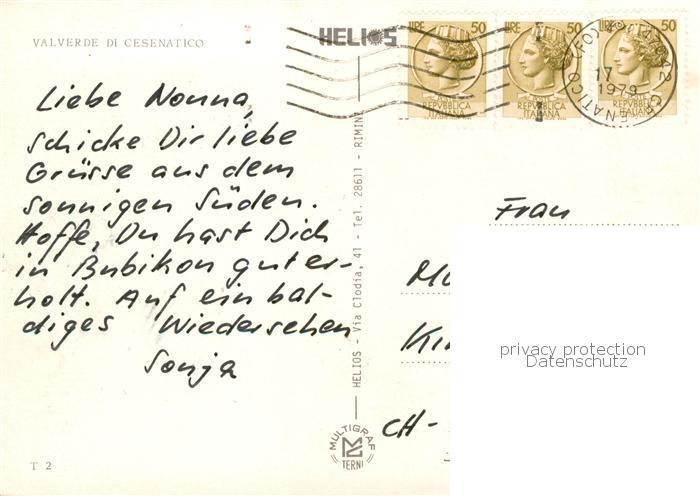 VALVERDE DI CESENATICO
HELIOS
LIRE 50
LIRE 50
LIRE 50
REPVBBLICA ITALIANA
REPVBBLICA ITALIANA
REPVBBLICA ITALIANA
17
1979
Liebe Nonna,
schicke Dir liebe
Grüsse aus dem
sonnigen Süden.
Hoffe, Du hast Dich
in Bubikon guter-
holt. Auf ein bal-
diges Wiedersehen
Sonja
HELIOS - Via Clodia, 41 - Tel. 28611 - RIMINI
Frau
CH-
privacy protection
Datenschutz
MULTIGRAF
TERNI
T 2